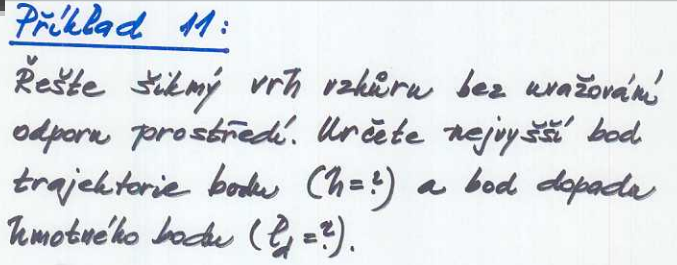 Příklad 11:
Řešte šikmý vrh vzhůru bez uvažování
odporu prostředí. Určete nejvyšší bod
trajektorie bodu (h=?) a bod dopadu
hmotného bodu (l_d=?).